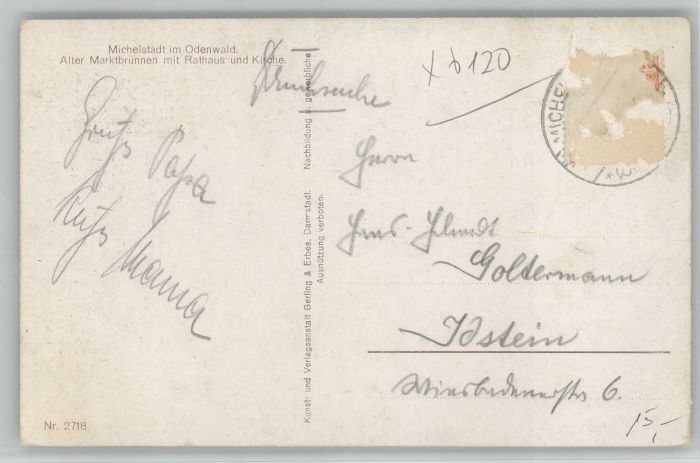 Michelstadt im Odenwald.
Alter Marktbrunnen mit Rathaus und Kirche.
Drucksache
x b 120
MICHE
Gruß Papa
Kuß Mama
Kunst- und Verlagsanstalt Gerling & Erbes, Darmstadt. Nachbildung u. gewerbliche
Ausnützung verboten.
Herrn
Hans-
Goltermann
Idstein
Wiesbadenerstr 6.
Nr. 2718
15,-